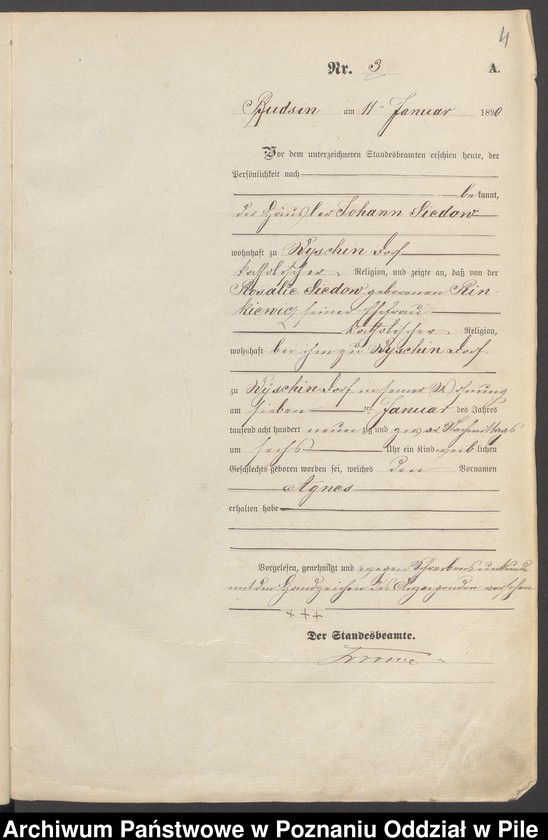 4
Nr. 3 A.
Budsin am 11 Januar 1890
Vor dem unterzeichneten Standesbeamten erschien heute, der
Persönlichkeit nach
bekannt,
der Häusler Johann Siedow
wohnhaft zu Wyschin Dorf
katholischer Religion, und zeigte an, daß von der
Rosalie Siedow geborenen Rin-
kiewicz seiner Ehefrau
katholischer Religion,
wohnhaft bei ihm zu Wyschin Dorf
zu Wyschin Dorf in seiner Wohnung
am sieben ten Januar des Jahres
tausend acht hundert neunzig und zwar Nachmittags
um sechs Uhr ein Kind weiblichen
Geschlechts geboren worden sei, welches den Vornamen
Agnes
erhalten habe
Vorgelesen, genehmigt und wegen Schreibensunkunde
mit den Handzeichen des Anzeigenden versehen
+++
Der Standesbeamte.
Archiwum Państwowe w Poznaniu Oddział w Pile